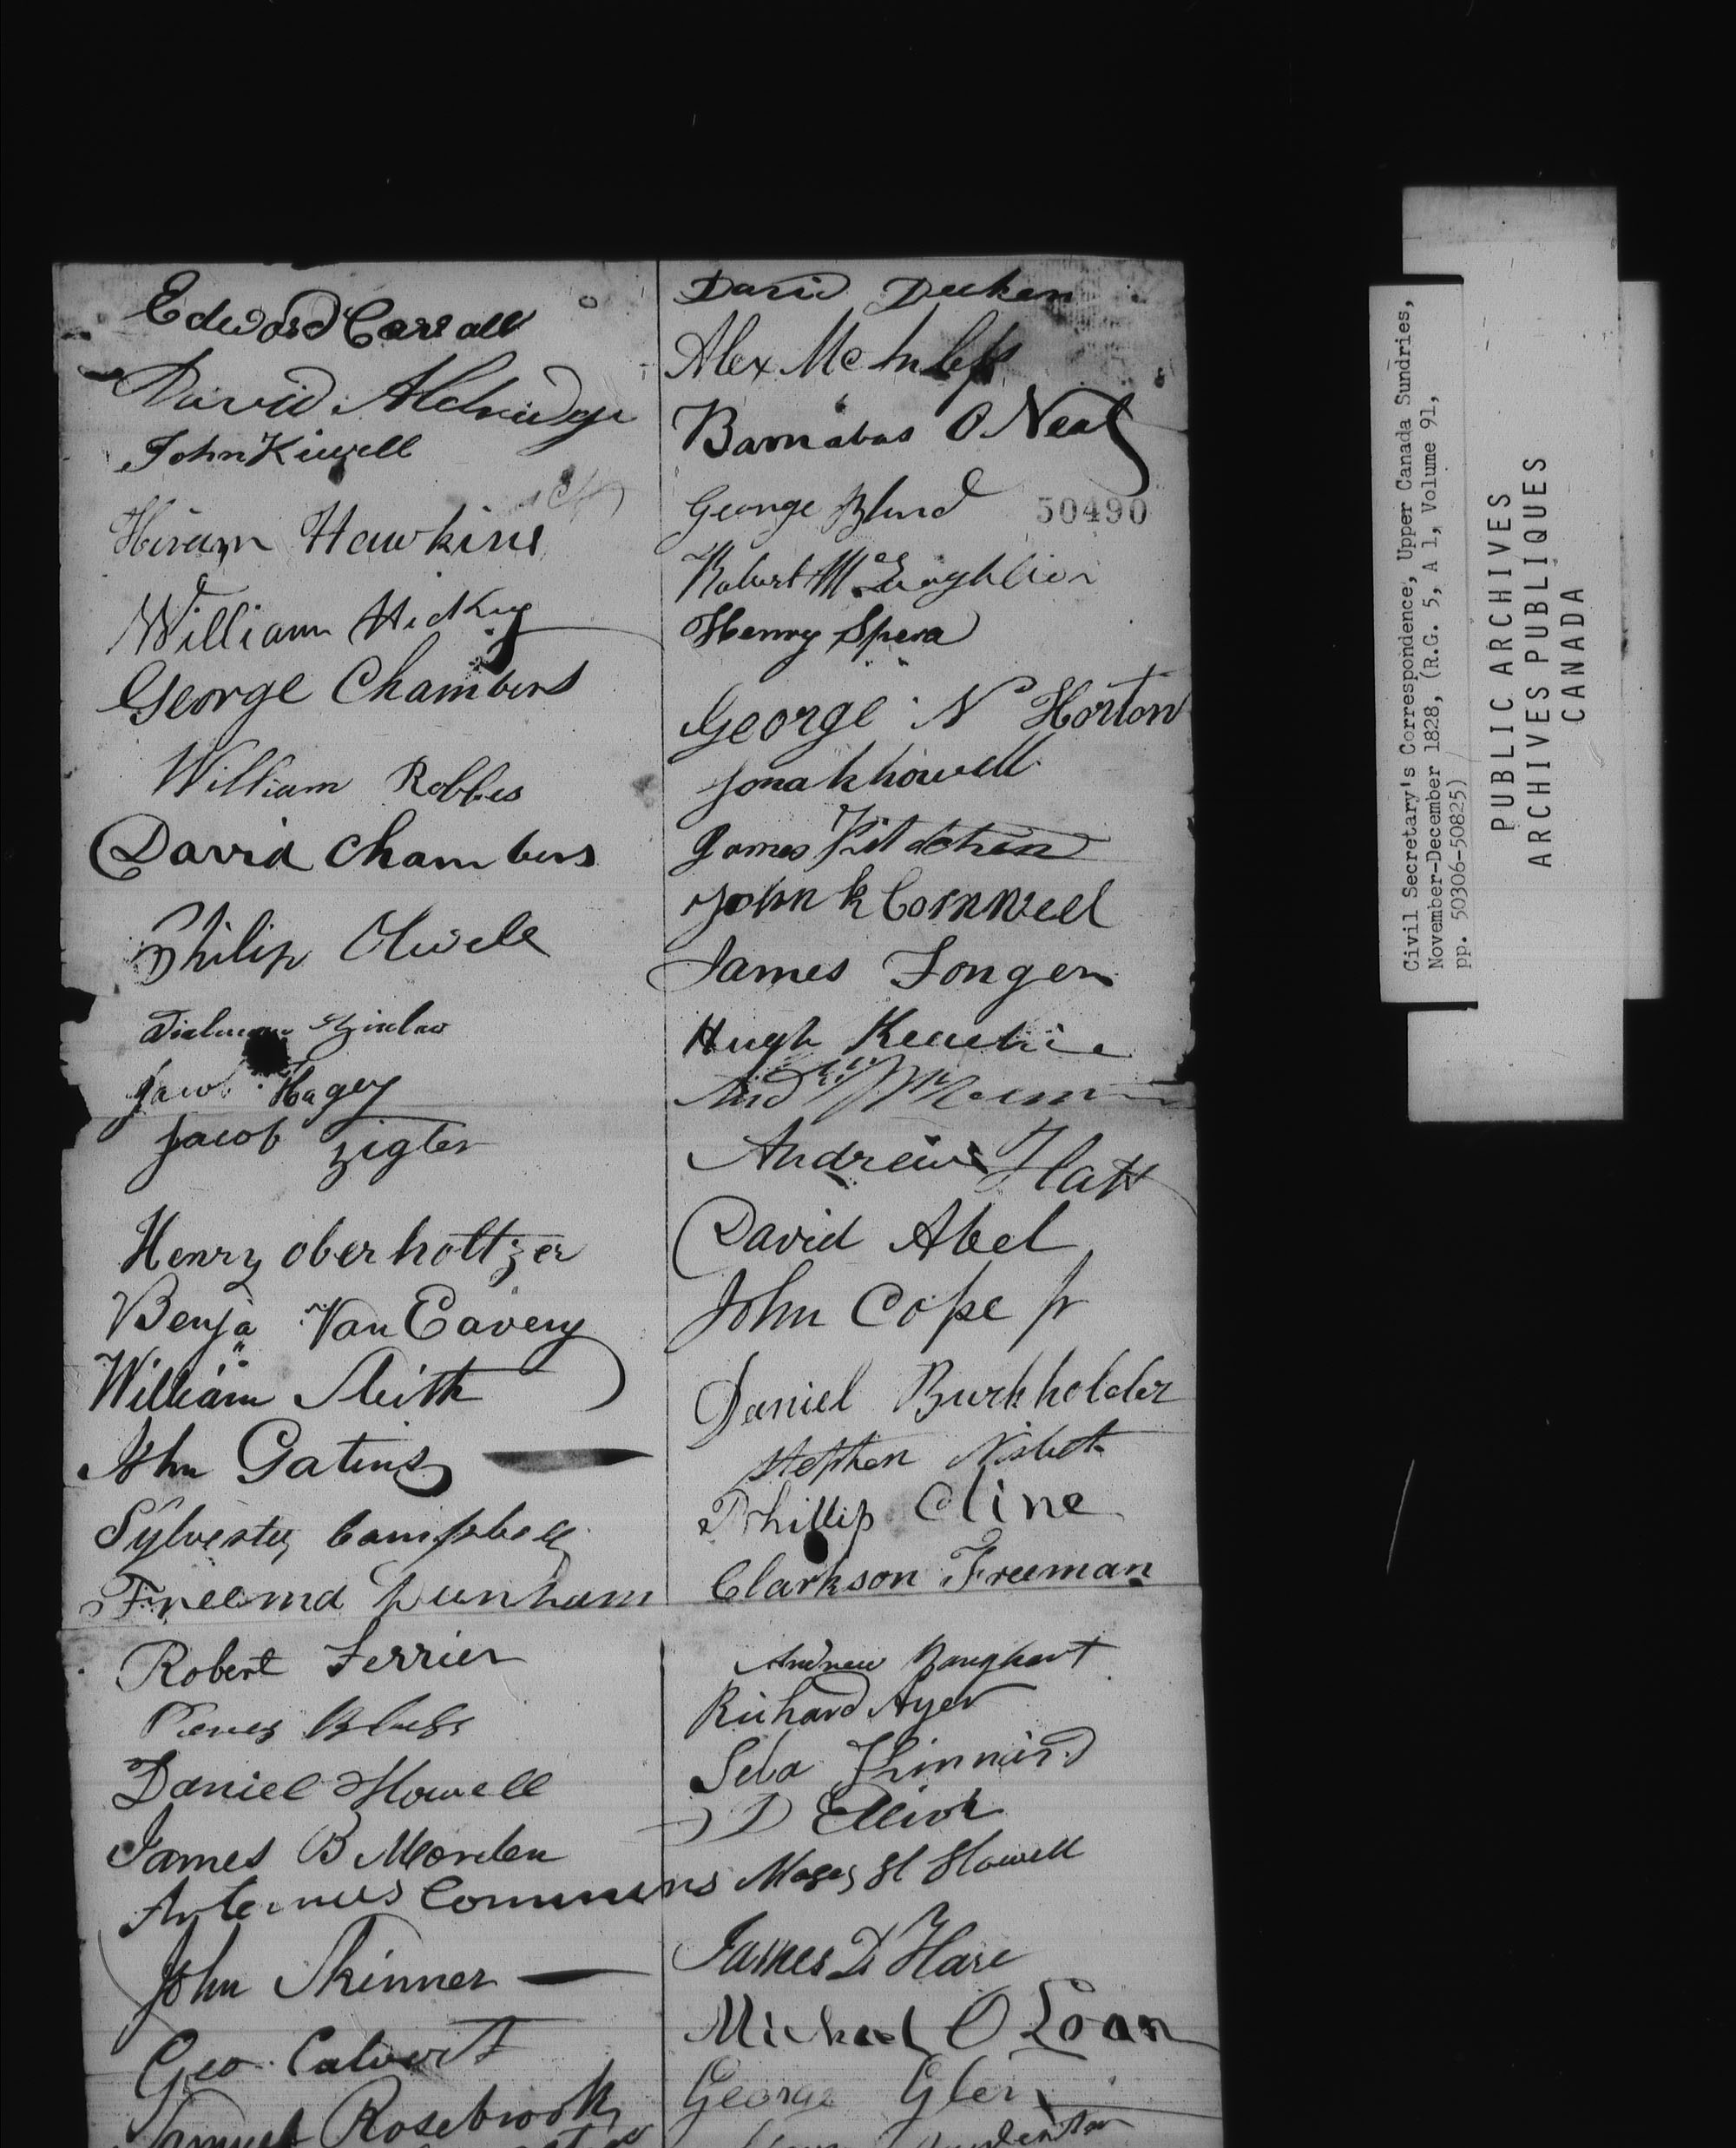 Edward Carrall
David Aldridge
John Kiwell
Hiram Hawkins
William Hickey
George Chambers
William Robbes
David Chambers
Philip Olwell
Hagey
Jacob Zigler
Henry oberholtzer
Benja Van Eavery
William Smith
John Gatens
Sylvester Campbell
Dunham
Robert Ferrier
Daniel Howell
James B Morden
Artemus Commins
John Skinner
Geo. Calvert
Samuel Rosebrook
David
Alex
Barnabas O Neal
George
50490
Robert
Henry Spera
George N Horton
Jonah howell
James Kitchen
John k Cornwell
James Fonger
Hugh
Andrew Hatt
David Abel
John Cope Jr
Daniel Burkholder
Stephen Nisbet
Phillip Cline
Clarkson Freeman
Andrew Banghart
Richard Ayer
Kinnard
D Elliot
Moses H Howell
James D Hare
Michael O Loan
George
Civil Secretary's Correspondence, Upper Canada Sundries,
November-December 1828, (R.G. 5, A 1, Volume 91,
pp. 50306-50825)
PUBLIC ARCHIVES
ARCHIVES PUBLIQUES
CANADA